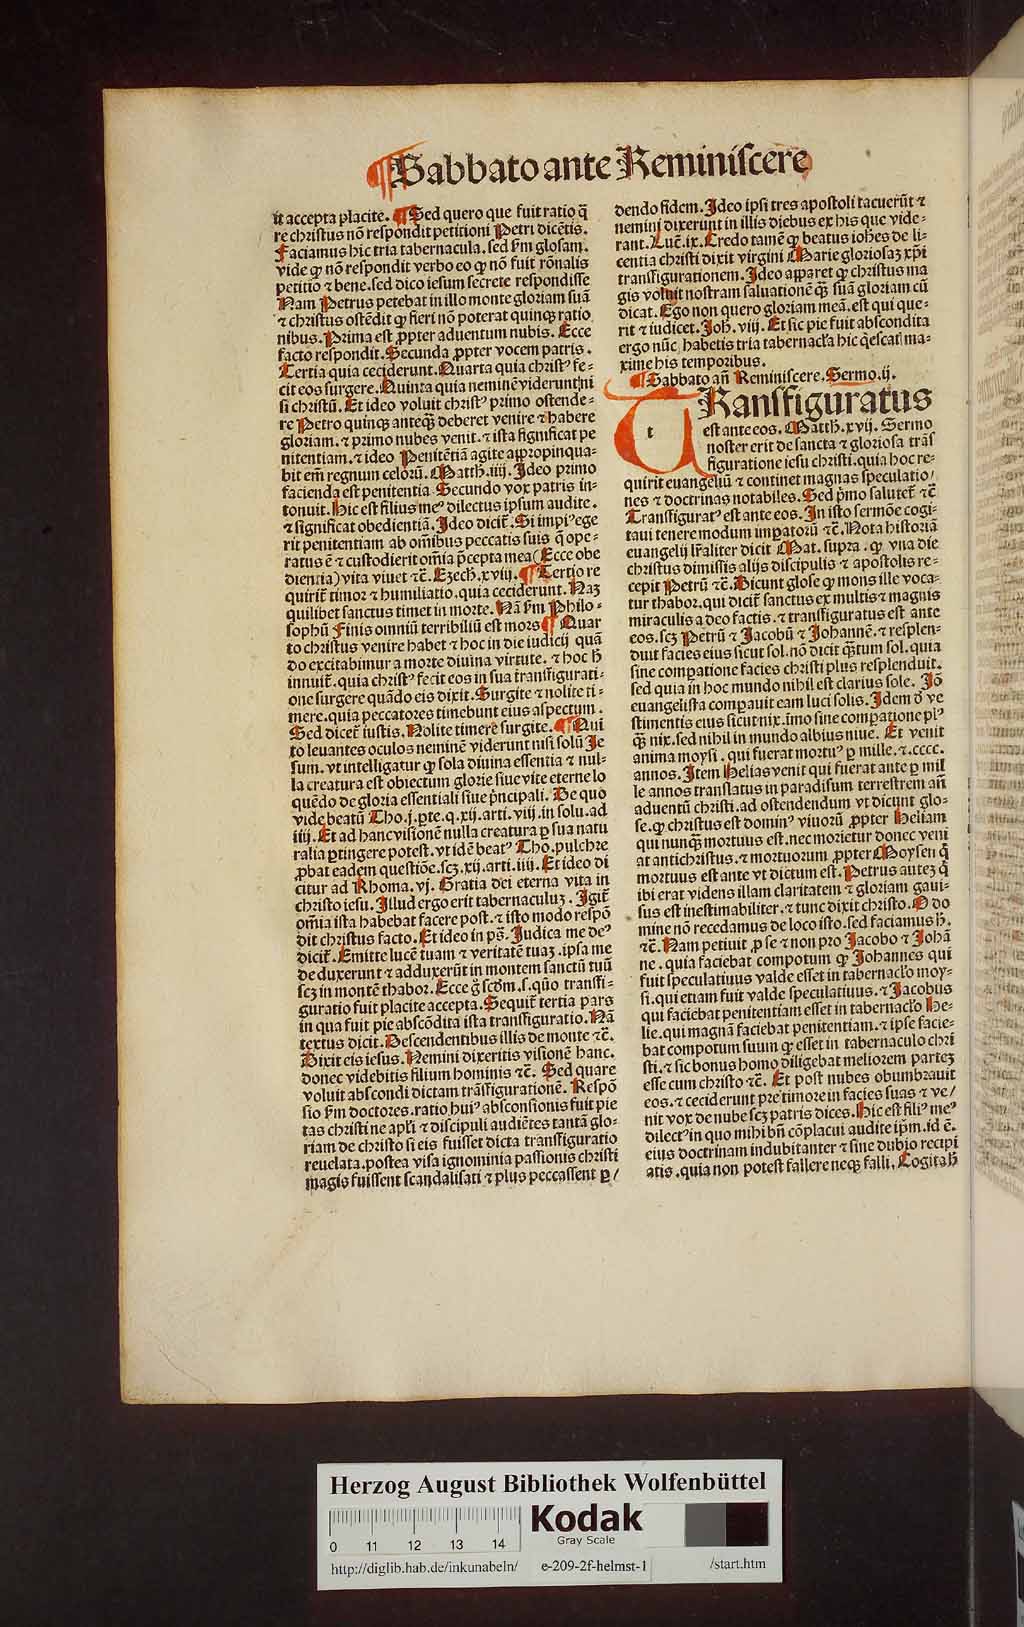 ¶Sabbato ante Reminiscere
it accepta placite. ¶ Sed quero que fuit ratio q̄
re christus nō respondit petitioni Petri dicētis.
Faciamus hic tria tabernacula. sed ẜm glosam.
vide ꝙ nō respondit verbo eo ꝙ nō fuit rōnalis
petitio ⁊ bene. sed dico iesum secrete respondisse
Nam Petrus petebat in illo monte gloriam suā
⁊ christus ostēdit ꝙ fieri nō poterat quinqꝫ ratio
nibus. Prima est ꝓpter aduentum nubis. Ecce
facto respondit. Secunda ꝓpter vocem patris.
Tertia quia ceciderunt. Quarta quia christꝰ fe-
cit eos surgere. Quinta quia neminē viderunt ni
si christū. Et ideo voluit christꝰ primo ostende-
re Petro quinqꝫ anteqꝫ̄ deberet venire ⁊ habere
gloriam. ⁊ primo nubes venit. ⁊ ista significat pe
nitentiam. ⁊ ideo Penitētiā agite appropinqua-
bit em̄ regnum celorū. Matth. iiij. Ideo primo
facienda est penitentia Secundo vox patris in-
tonuit. Hic est filius meꝰ dilectus ipsum audite.
⁊ significat obedientiā. Ideo dicit̄. Si impiꝰ ege
rit penitentiam ab om̄ibus peccatis suis q̄ ope-
ratus ē ⁊ custodierit om̄ia p̄cepta mea (Ecce obe
dientia) vita viuet ⁊c̄. Ezech. xviij. ¶ Tertio re
quirit̄ timor ⁊ humiliatio. quia ceciderunt. Naꝫ
quilibet sanctus timet in morte. Nā ẜm Philo-
sophū Finis omniū terribiliū est mors ¶ Quar
to christus venire habet ⁊ hoc in die iudicij quā
do excitabimur a morte diuina virtute. ⁊ hoc h̄
innuit̄. quia christꝰ fecit eos in sua transfigurati-
one surgere quādo eis dixit. Surgite ⁊ nolite ti-
mere. quia peccatores timebunt eius aspectum.
Sed dicet̄ iustis. Nolite timere surgite. ¶ Qui
to leuantes oculos neminē viderunt nisi solū Je
sum. vt intelligatur ꝙ sola diuina essentia ⁊ nul-
la creatura est obiectum glorie siue vite eterne lo
quēdo de gloria essentiali siue p̄ncipali. De quo
vide beatū Tho. j. ꝑte. q. xij. arti. viij. in solu. ad
iiij. Et ad hanc visionē nulla creatura ꝑ sua natu
ralia ꝑtingere potest. vt idē beatꝰ Tho. pulchre
ꝓbat eadem questiōe. scꝫ. xij. arti. iiij. Et ideo di
citur ad Rhoma. vj. Gratia dei eterna vita in
christo iesu. Illud ergo erit tabernaculuꝫ. Igit̄
om̄ia ista habebat facere post. ⁊ isto modo respō
dit christus facto. Et ideo in ps̄. Judica me deꝰ
dicit̄. Emitte lucē tuam ⁊ veritatē tuaꝫ. ipsa me
de duxerunt ⁊ adduxerūt in montem sanctū tuū
scꝫ in montē thabor. Ecce ḡ scd̄m. s. qūo transfi-
guratio fuit placite accepta. Sequit̄ tertia pars
in qua fuit pie abscōdita ista transfiguratio. Nā
textus dicit. Descendentibus illis de monte ⁊c̄.
Dixit eis iesus. Nemini dixeritis visionē hanc.
donec videbitis filium hominis ⁊c̄. Sed quare
voluit abscondi dictam trāsfigurationē. Respō
sio ẜm doctores. ratio huiꝰ absconsionis fuit pie
tas christi ne apl̄i ⁊ discipuli audiētes tantā glo-
riam de christo si eis fuisset dicta transfiguratio
reuelata. postea visa ignominia passionis christi
magis fuissent scandalisati ⁊ plus peccassent ꝑ/
dendo fidem. Ideo ipsi tres apostoli tacuerūt ⁊
nemini dixerunt in illis diebus ex his que vide-
rant. Luc̄. ix. Credo tamē ꝙ beatus ioh̄es de li-
centia christi dixit virgini Marie gloriosaꝫ xp̄i
transfigurationem. Ideo apparet ꝙ christus ma
gis voluit nostram saluationē qꝫ̄ suā gloriam cū
dicat. Ego non quero gloriam meā. est qui que-
rit ⁊ iudicet. Joh̄. viij. Et sic pie fuit abscondita
ergo nūc habetis tria tabernacl̓a hic q̄escat̄ ma-
xime his temporibus.
¶ Sabbato an̄ Reminiscere. Sermo. ij.
t
TRansfiguratus
est ante eos. Matth. xvij. Sermo
noster erit de sancta ⁊ gloriosa trās
figuratione iesu christi. quia hoc re-
quirit euangeliū ⁊ continet magnas speculatio/
nes ⁊ doctrinas notabiles. Sed p̄mo salutet̄ ⁊c̄
Transfiguratꝰ est ante eos. In isto sermōe cogi-
taui tenere modum imꝑatorū ⁊c̄. Nota historiā
euangelij lr̄aliter dicit Mat. supra. ꝙ vna die
christus dimissis alijs discipulis ⁊ apostolis re-
cepit Petrū ⁊c̄. Dicunt glose ꝙ mons ille voca-
tur thabor. qui dicit̄ sanctus ex multis ⁊ magnis
miraculis a deo factis. ⁊ transfiguratus est ante
eos. scꝫ Petrū ⁊ Jacobū ⁊ Johannē. ⁊ resplen-
duit facies eius sicut sol. nō dicit qꝫ̄tum sol. quia
sine comꝑatione facies christi plus resplenduit.
sed quia in hoc mundo nihil est clarius sole. Iō
euangelista comꝑauit eam luci solis. Idem d̄ ve
stimentis eius sicut nix. īmo sine comꝑatione plꝰ
qꝫ̄ nix. sed nihil in mundo albius niue. Et venit
anima moysi. qui fuerat mortuꝰ ꝑ mille. ⁊. cccc.
annos. Item Helias venit qui fuerat ante ꝑ mil
le annos translatus in paradisum terrestrem an̄
aduentū christi. ad ostendendum vt dicunt glo-
se. ꝙ christus est dominꝰ viuorū ꝓpter Heliam
qui nunqꝫ̄ mortuus est. nec morietur donec veni
at antichristus. ⁊ mortuorum ꝓpter Moysen q̄
mortuus est ante vt dictum est. Petrus auteꝫ q̄
ibi erat videns illam claritatem ⁊ gloriam gaui-
sus est inestimabiliter. ⁊ tunc dixit christo. O do
mine nō recedamus de loco isto. sed faciamus h̄.
⁊c̄. Nam petiuit ꝓ se ⁊ non pro Jacobo ⁊ Johā
ne. quia faciebat compotum ꝙ Johannes qui
fuit speculatiuus valde esset in tabernacl̓o moy-
si. qui etiam fuit valde speculatiuus. ⁊ Jacobus
qui faciebat penitentiam esset in tabernacl̓o He-
lie. qui magnā faciebat penitentiam. ⁊ ipse facie-
bat compotum suum ꝙ esset in tabernaculo chri
sti. ⁊ sic bonus homo diligebat meliorem parteꝫ
esse cum christo ⁊c̄. Et post nubes obumbrauit
eos. ⁊ ceciderunt pre timore in facies suas ⁊ ve/
nit vox de nube scꝫ patris dices. Hic est filiꝰ meꝰ
dilectꝰ in quo mihi bn̄ cōplacui audite ip̄m. id ē.
eius doctrinam indubitanter ⁊ sine dubio recipi
atis. quia non potest fallere neqꝫ falli. Cogitab̄
Herzog August Bibliothek Wolfenbüttel
0 11 12 13 14
Kodak
Gray Scale
http://diglib.hab.de/inkunabeln/ e-209-2f-helmst-1 /start.htm